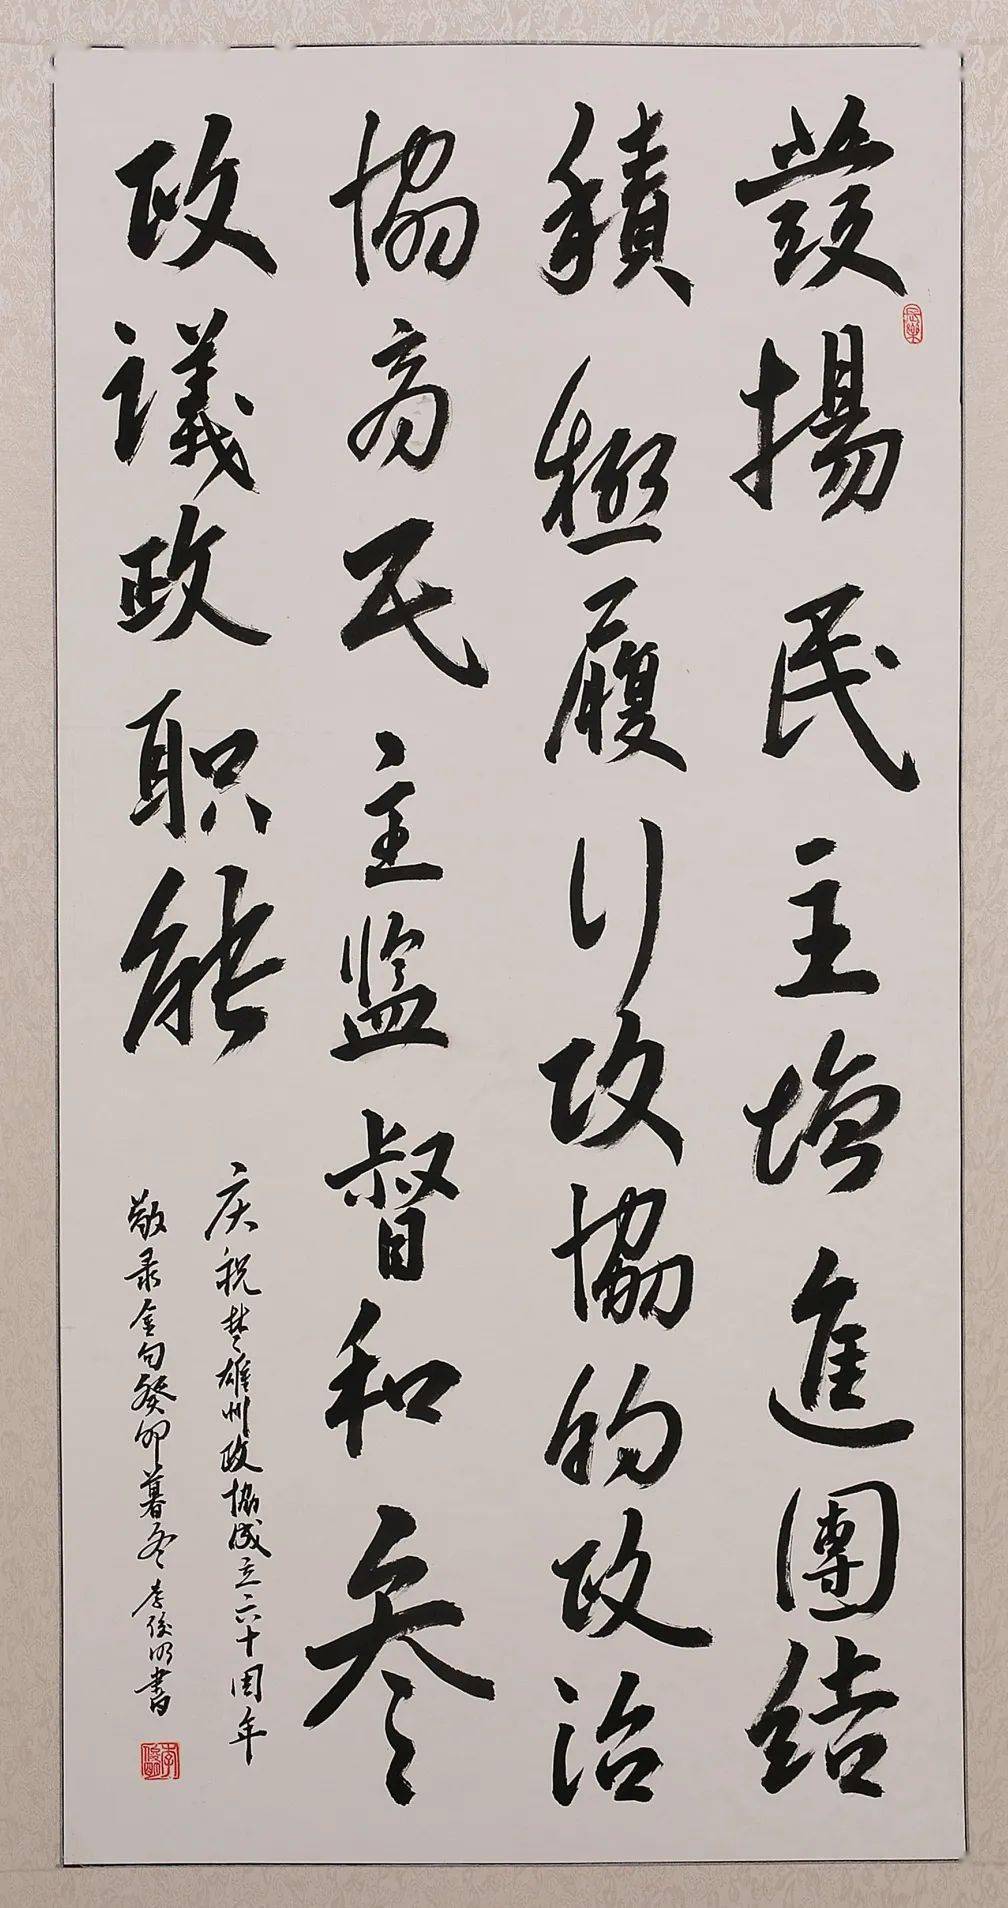 发揚民主增進團结
積極履行政協的政治
協商民主监督和参
政議政职能
庆祝楚雄州政協成立六十周年
敬录金句癸卯暮冬李俊明書